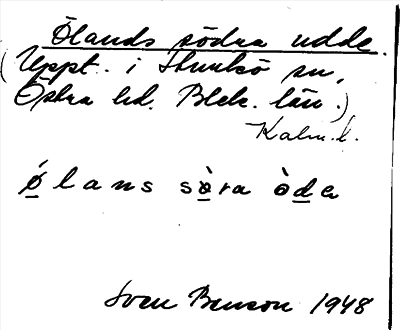 Ölands södra udde.
(Uppt. i Sturkö sn,
Östra hd. Blek. län.)
Kalm. l.
ø̀lans sø̀ra ò̀de
Sven Benson 1948